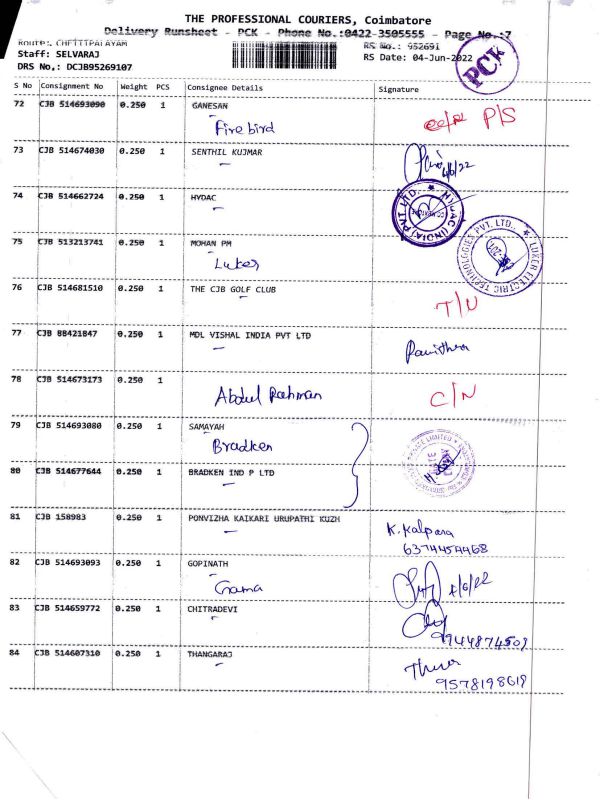 THE PROFESSIONAL COURIERS, Coimbatore
Delivery Runsheet - PCK - Phone No.:0422-3505555 - Page No.:7
Route: CHETTIPALAYAM
RS No.: 952691
Staff: SELVARAJ
RS Date: 04-Jun-2022
PCK
DRS No.: DCJB95269107
S No Consignment No Weight PCS Consignee Details Signature
72 CJB 514693090 0.250 1 GANESAN
Fire bird P/S
73 CJB 514674030 0.250 1 SENTHIL KUJMAR
4/6/22
74 CJB 514662724 0.250 1 HYDAC
HYDAC (INDIA) PVT. LTD.
75 CJB 513213741 0.250 1 MOHAN PM
Luker
LUKER ELECTRIC TECHNOLOGIES PVT. LTD.
76 CJB 514681510 0.250 1 THE CJB GOLF CLUB
T/N
77 CJB 88421847 0.250 1 MDL VISHAL INDIA PVT LTD
Pavithra
78 CJB 514673173 0.250 1
Abdul Rahman C/N
79 CJB 514693080 0.250 1 SAMAYAH
Bradken
80 CJB 514677644 0.250 1 BRADKEN IND P LTD
81 CJB 158983 0.250 1 PONVIZHA KAIKARI URUPATHI KUZH
K. Kalpana
6374454468
82 CJB 514693093 0.250 1 GOPINATH
Gama 4/6/22
83 CJB 514659772 0.250 1 CHITRADEVI
9944874509
84 CJB 514607310 0.250 1 THANGARAJ
9578198619